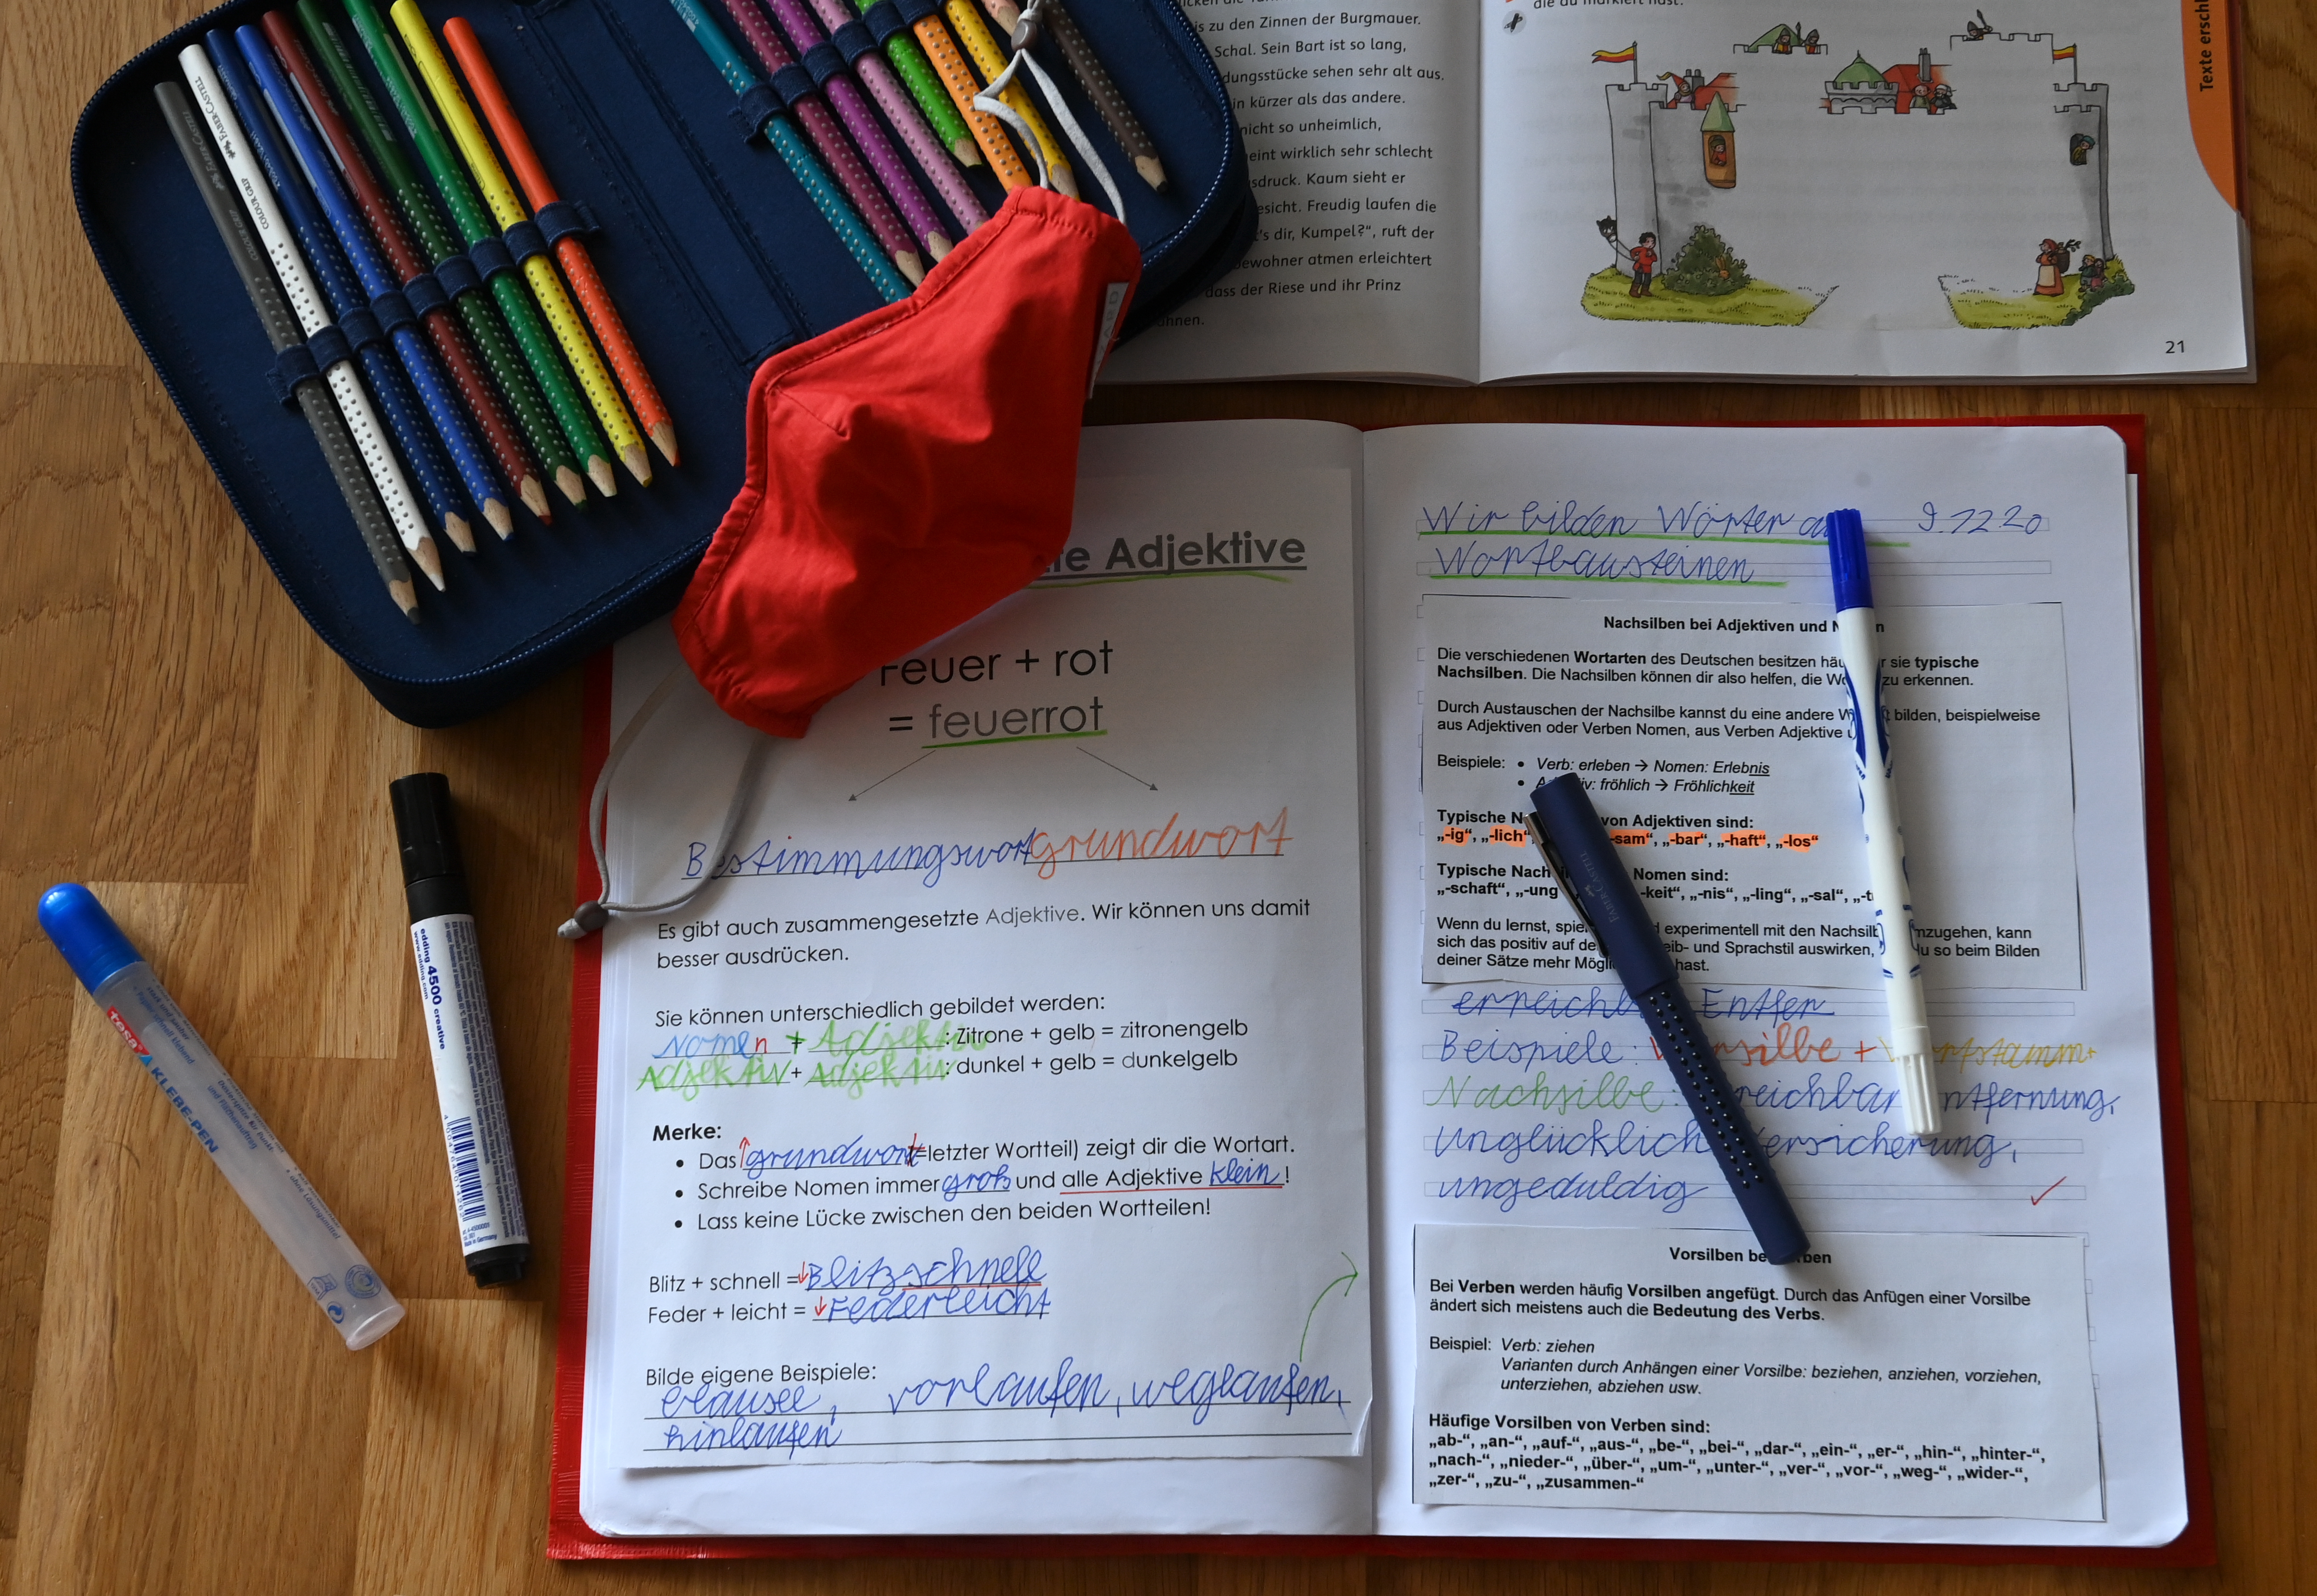 is zu den Zinnen der Burgmauer.
Schal. Sein Bart ist so lang,
dungsstücke sehen sehr alt aus.
in kürzer als das andere.
nicht so unheimlich,
eint wirklich sehr schlecht
sdruck. Kaum sieht er
esicht. Freudig laufen die
t's dir, Kumpel?“, ruft der
bewohner atmen erleichtert
dass der Riese und ihr Prinz
ohnen.
die du markiert hast.
Texte erschl
21
FABER-CASTELL
COLOUR GRIP
Adjektive
Feuer + rot
= feuerrot
Bestimmungswort grundwort
Es gibt auch zusammengesetzte Adjektive. Wir können uns damit
besser ausdrücken.
Sie können unterschiedlich gebildet werden:
Nomen + Adjektiv: Zitrone + gelb = zitronengelb
Adjektiv + Adjektiv: dunkel + gelb = dunkelgelb
Merke:
• Das grundwort (=letzter Wortteil) zeigt dir die Wortart.
• Schreibe Nomen immer groß und alle Adjektive klein!
• Lass keine Lücke zwischen den beiden Wortteilen!
Blitz + schnell = Blitzschnell
Feder + leicht = Federleicht
Bilde eigene Beispiele:
vorlaufen, weglaufen,
hinlaufen
Wir bilden Wörter au 9.12 20
Wortbausteinen
Nachsilben bei Adjektiven und N n
Die verschiedenen Wortarten des Deutschen besitzen häu r sie typische
Nachsilben. Die Nachsilben können dir also helfen, die Wo zu erkennen.
Durch Austauschen der Nachsilbe kannst du eine andere W bilden, beispielweise
aus Adjektiven oder Verben Nomen, aus Verben Adjektive u
Beispiele: • Verb: erleben → Nomen: Erlebnis
• A iv: fröhlich → Fröhlichkeit
Typische N von Adjektiven sind:
„-ig“, „-lich“ -sam“, „-bar“, „-haft“, „-los“
Typische Nach Nomen sind:
„-schaft“, „-ung -keit“, „-nis“, „-ling“, „-sal“, „-t
Wenn du lernst, spiel d experimentell mit den Nachsilb mzugehen, kann
sich das positiv auf de eib- und Sprachstil auswirken, du so beim Bilden
deiner Sätze mehr Mögli hast.
erreichb Entfer
Beispiele: V rsilbe + W rtstamm+
Nachsilbe: reichbar ntfernung,
unglücklich Versicherung,
ungeduldig
Vorsilben be rben
Bei Verben werden häufig Vorsilben angefügt. Durch das Anfügen einer Vorsilbe
ändert sich meistens auch die Bedeutung des Verbs.
Beispiel: Verb: ziehen
Varianten durch Anhängen einer Vorsilbe: beziehen, anziehen, vorziehen,
unterziehen, abziehen usw.
Häufige Vorsilben von Verben sind:
„ab-“, „an-“, „auf-“, „aus-“, „be-“, „bei-“, „dar-“, „ein-“, „er-“, „hin-“, „hinter-“,
„nach-“, „nieder-“, „über-“, „um-“, „unter-“, „ver-“, „vor-“, „weg-“, „wider-“,
„zer-“, „zu-“, „zusammen-“
FABER-CASTELL
edding 4500 creative
www.edding.com
Made in Germany
tesa
KLEBE-PEN